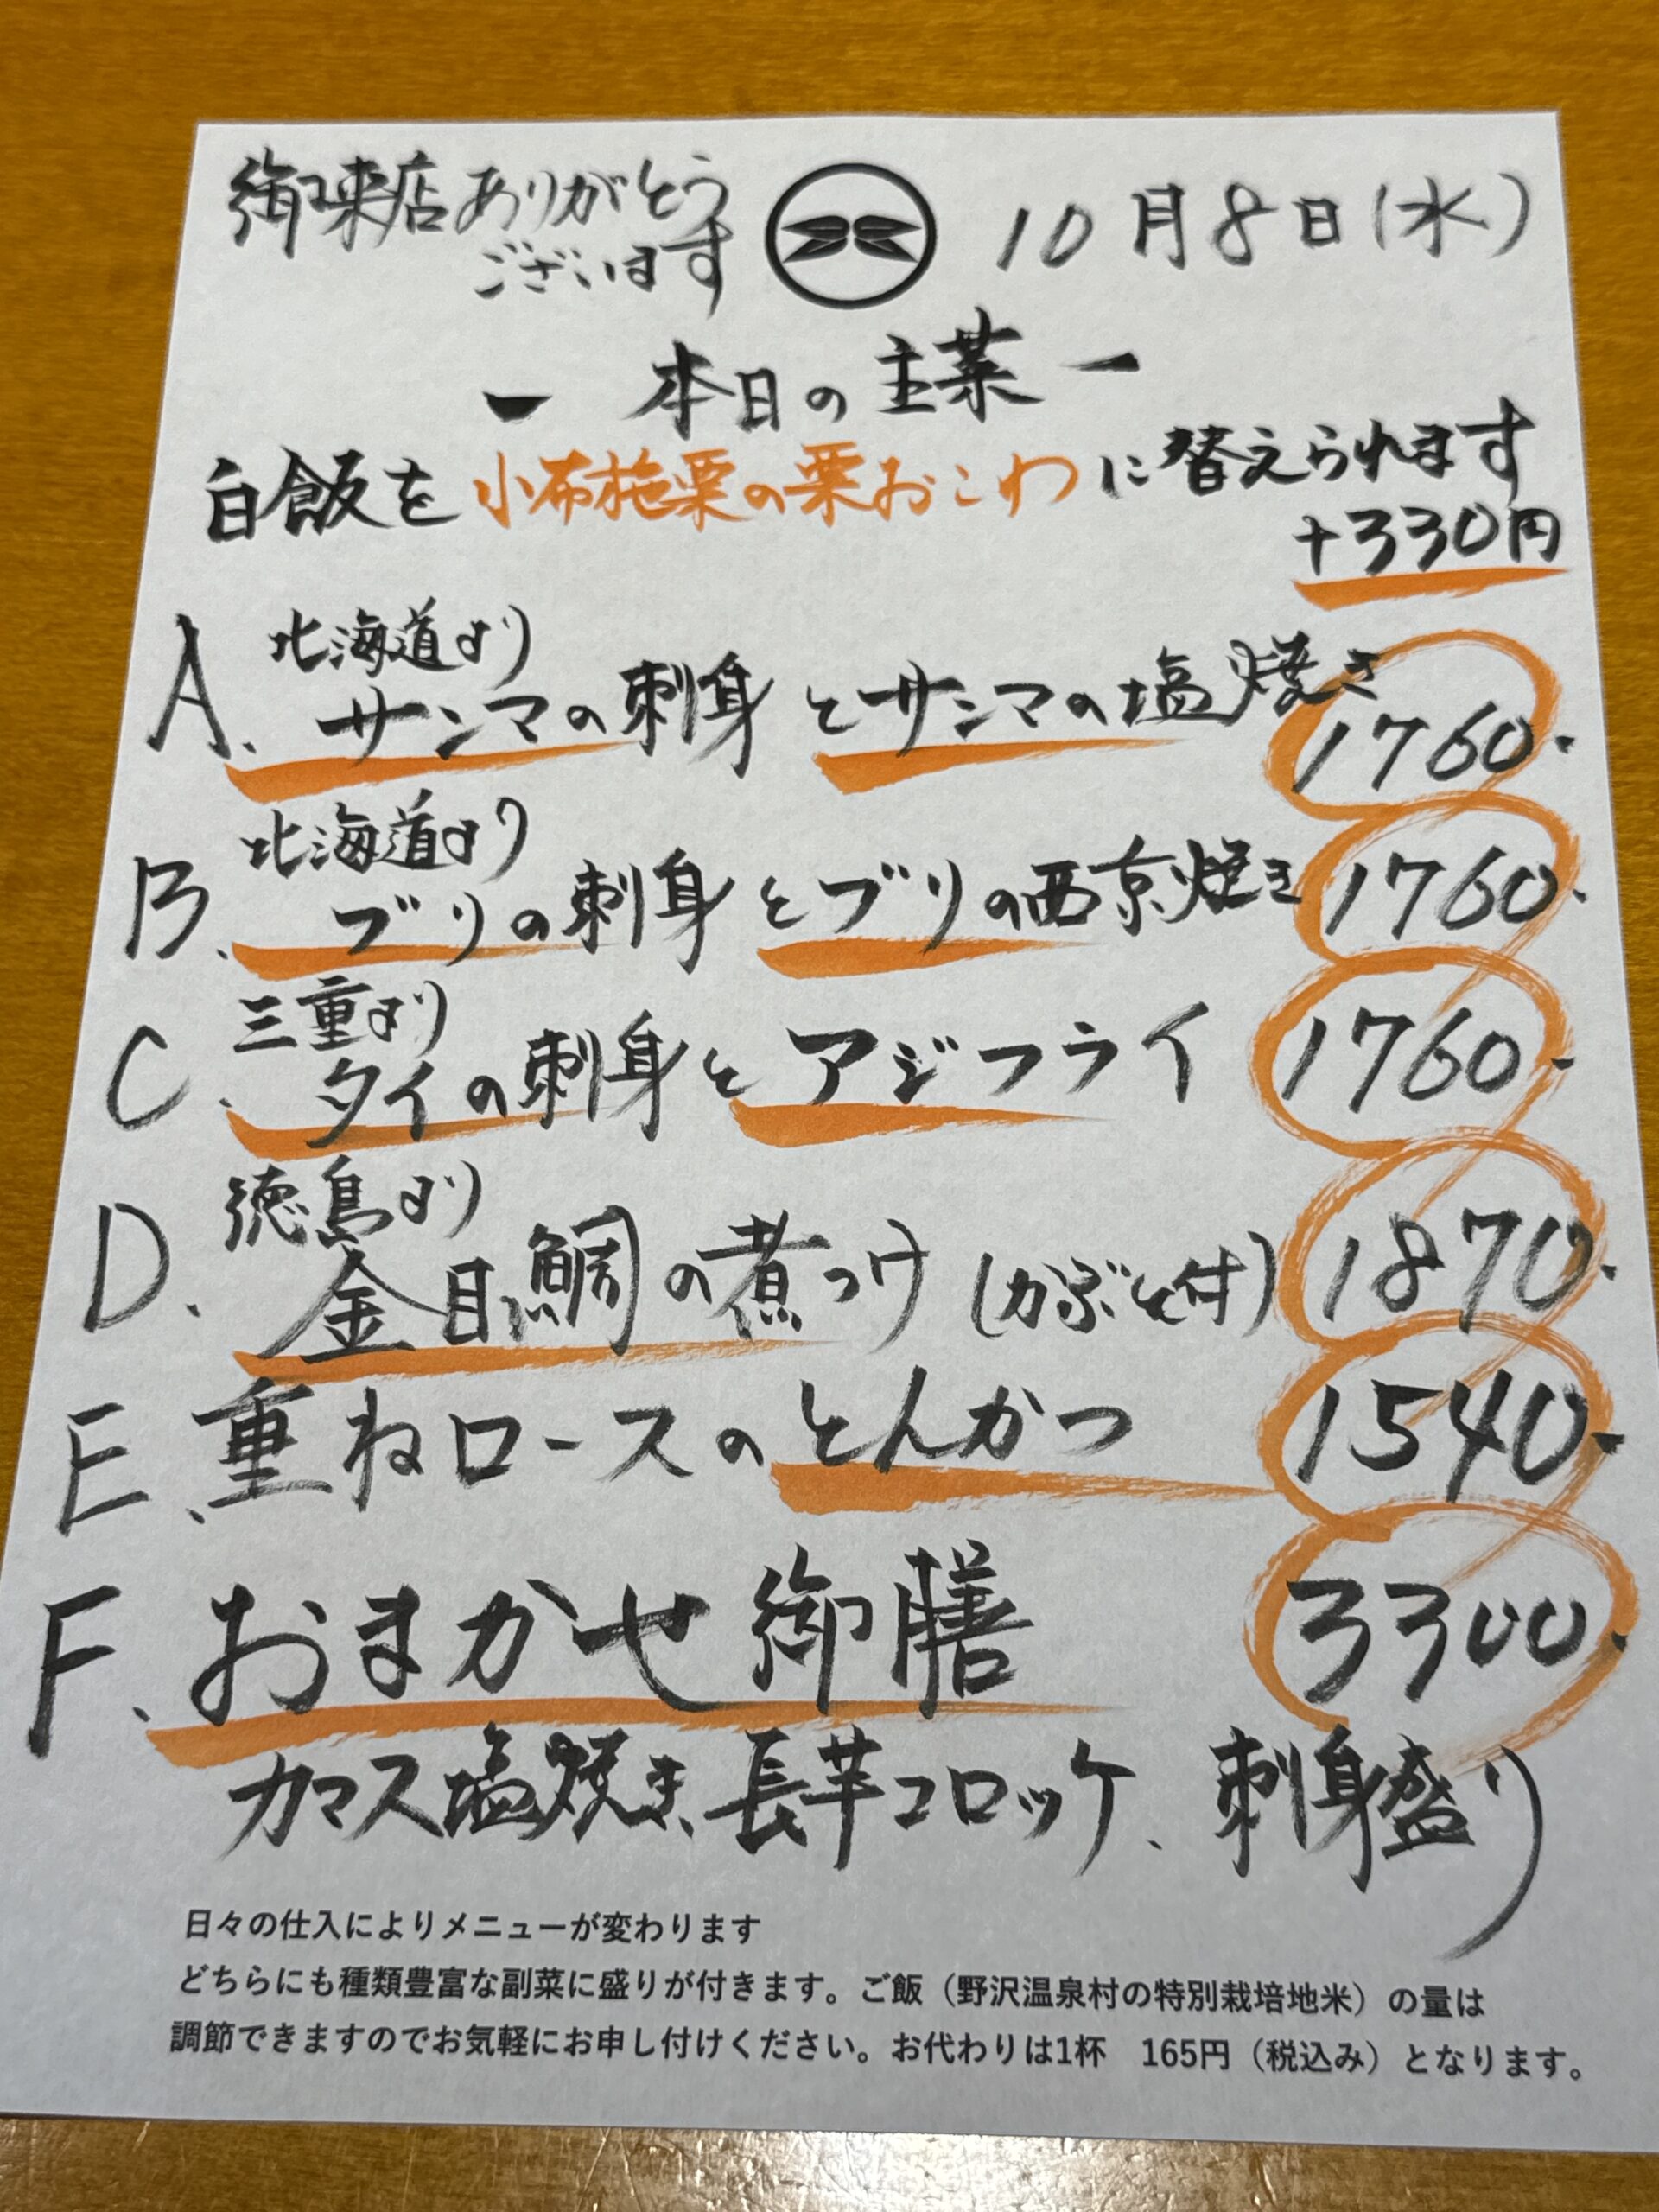 御来店ありがとう
ございます
10月8日(水)
ー 本日の主菜 ー
白飯を小布施栗の栗おこわに替えられます
+330円
北海道より
A. サンマの刺身とサンマの塩焼き 1760.
北海道より
B. ブリの刺身とブリの西京焼き 1760.
三重より
C. タイの刺身とアジフライ 1760.
徳島より
D. 金目鯛の煮つけ(かぶと付) 1870.
E. 重ねロースのとんかつ 1540.
F. おまかせ御膳 3300.
カマス塩焼き、長芋コロッケ、刺身盛り
日々の仕入によりメニューが変わります
どちらにも種類豊富な副菜に盛りが付きます。ご飯（野沢温泉村の特別栽培地米）の量は
調節できますのでお気軽にお申し付けください。お代わりは1杯　165円（税込み）となります。